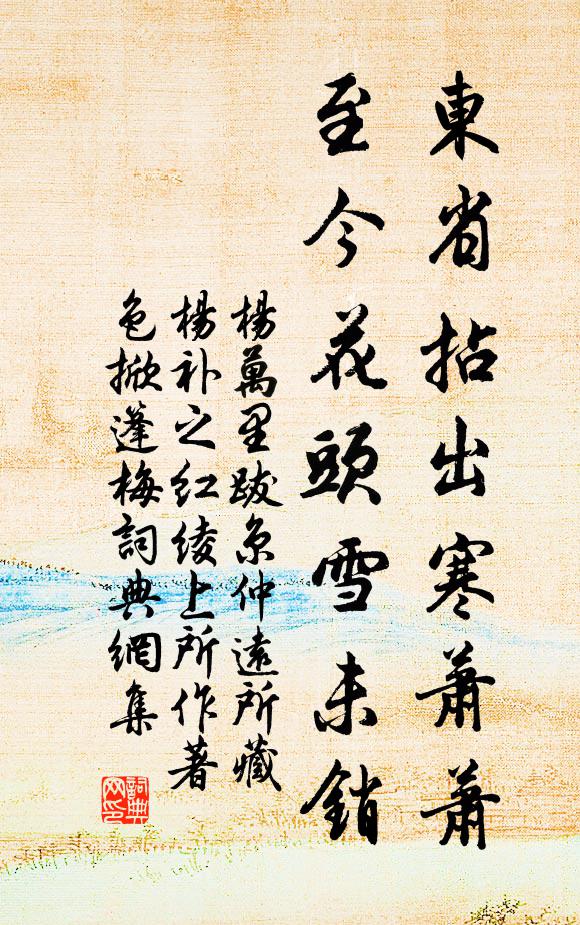 東省拈出寒蕭蕭
至今花頭雪未銷
楊萬里跋京仲遠所藏
楊补之红绫上所作著
色掀蓬梅詞典網集
詞典网印